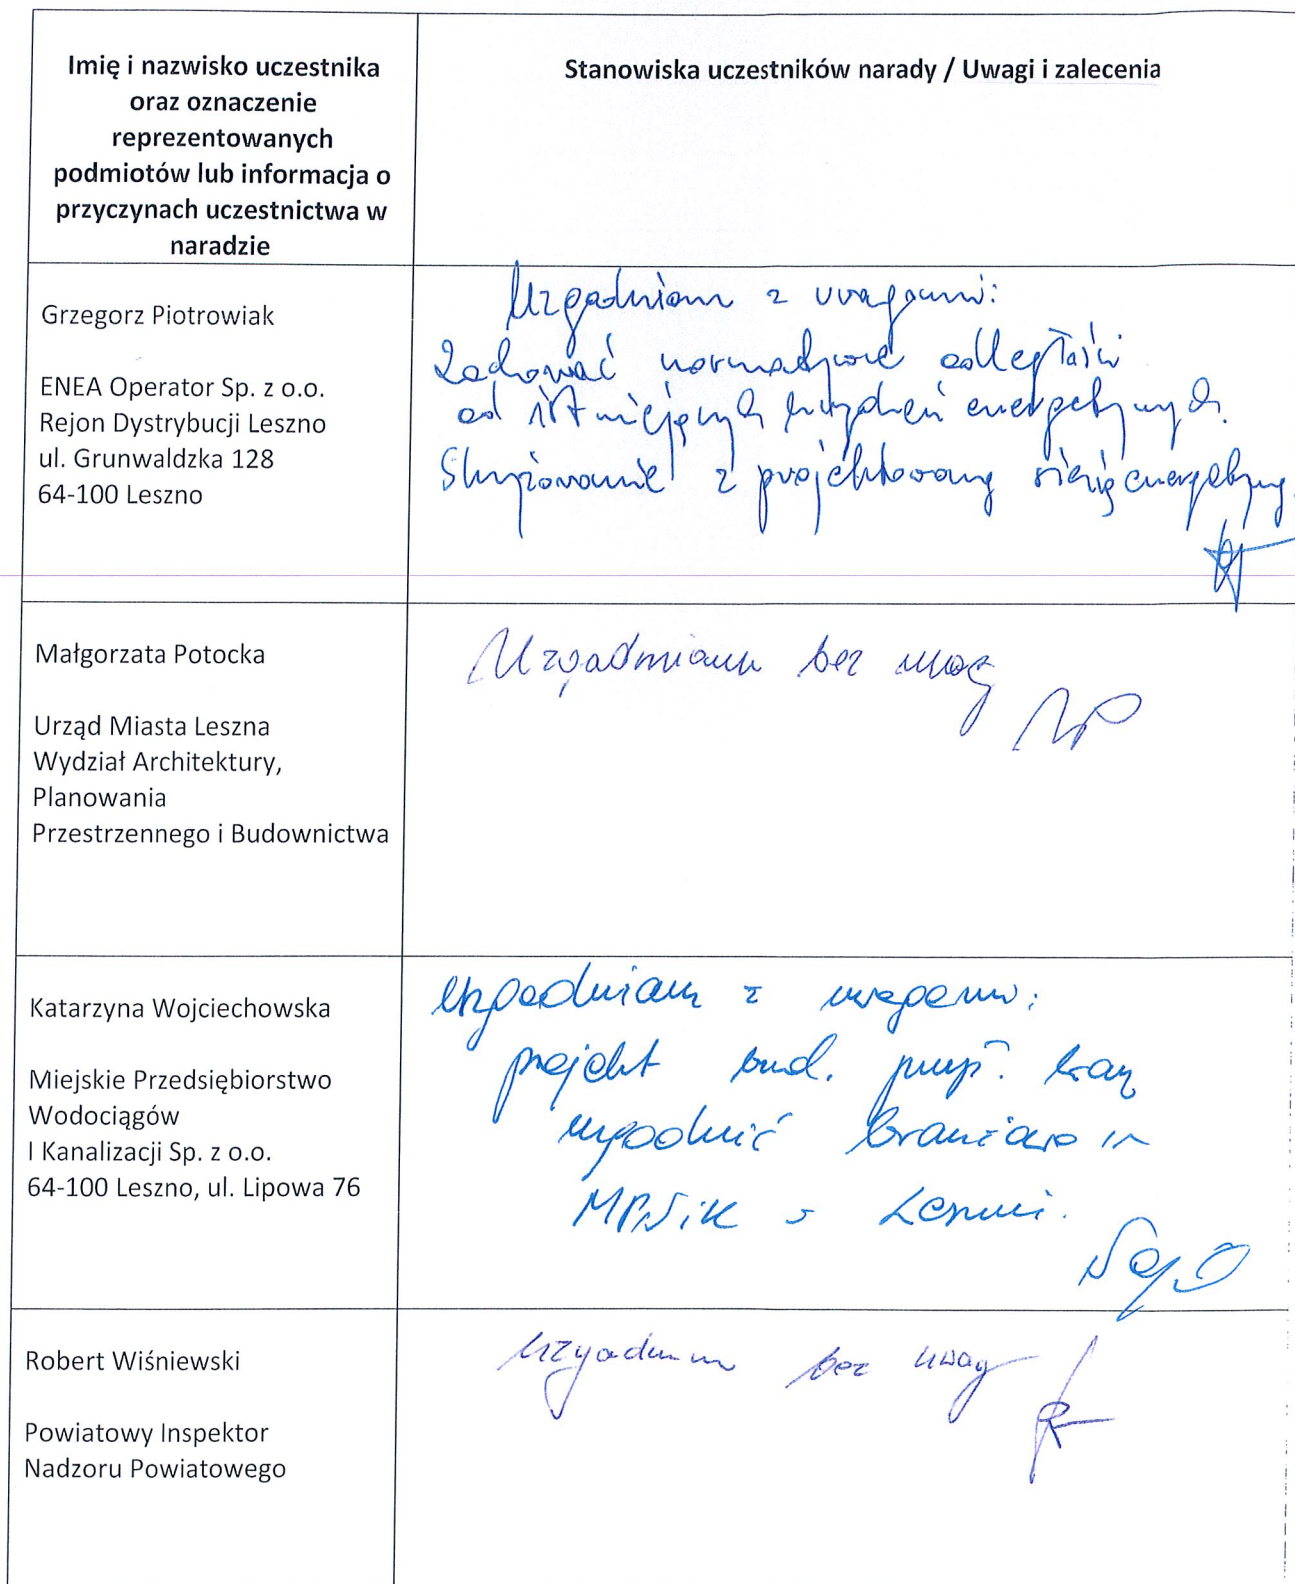 Imię i nazwisko uczestnika
oraz oznaczenie
reprezentowanych
podmiotów lub informacja o
przyczynach uczestnictwa w
naradzie
Stanowiska uczestników narady / Uwagi i zalecenia
Grzegorz Piotrowiak
ENEA Operator Sp. z o.o.
Rejon Dystrybucji Leszno
ul. Grunwaldzka 128
64-100 Leszno
Uzgadniam z uwagami:
Zachować normatywne odległości
od istniejących urządzeń energetycznych.
Skrzyżowanie z projektowaną siecią energetyczną.
Małgorzata Potocka
Urząd Miasta Leszna
Wydział Architektury,
Planowania
Przestrzennego i Budownictwa
Uzgadniam bez uwag
MP
Katarzyna Wojciechowska
Miejskie Przedsiębiorstwo
Wodociągów
I Kanalizacji Sp. z o.o.
64-100 Leszno, ul. Lipowa 76
Uzgadniam z uwagami:
projekt bud. przył. kan
uzgodnić branżowo w
MPWiK w Lesznie.
Robert Wiśniewski
Powiatowy Inspektor
Nadzoru Powiatowego
Uzgadniam bez uwag